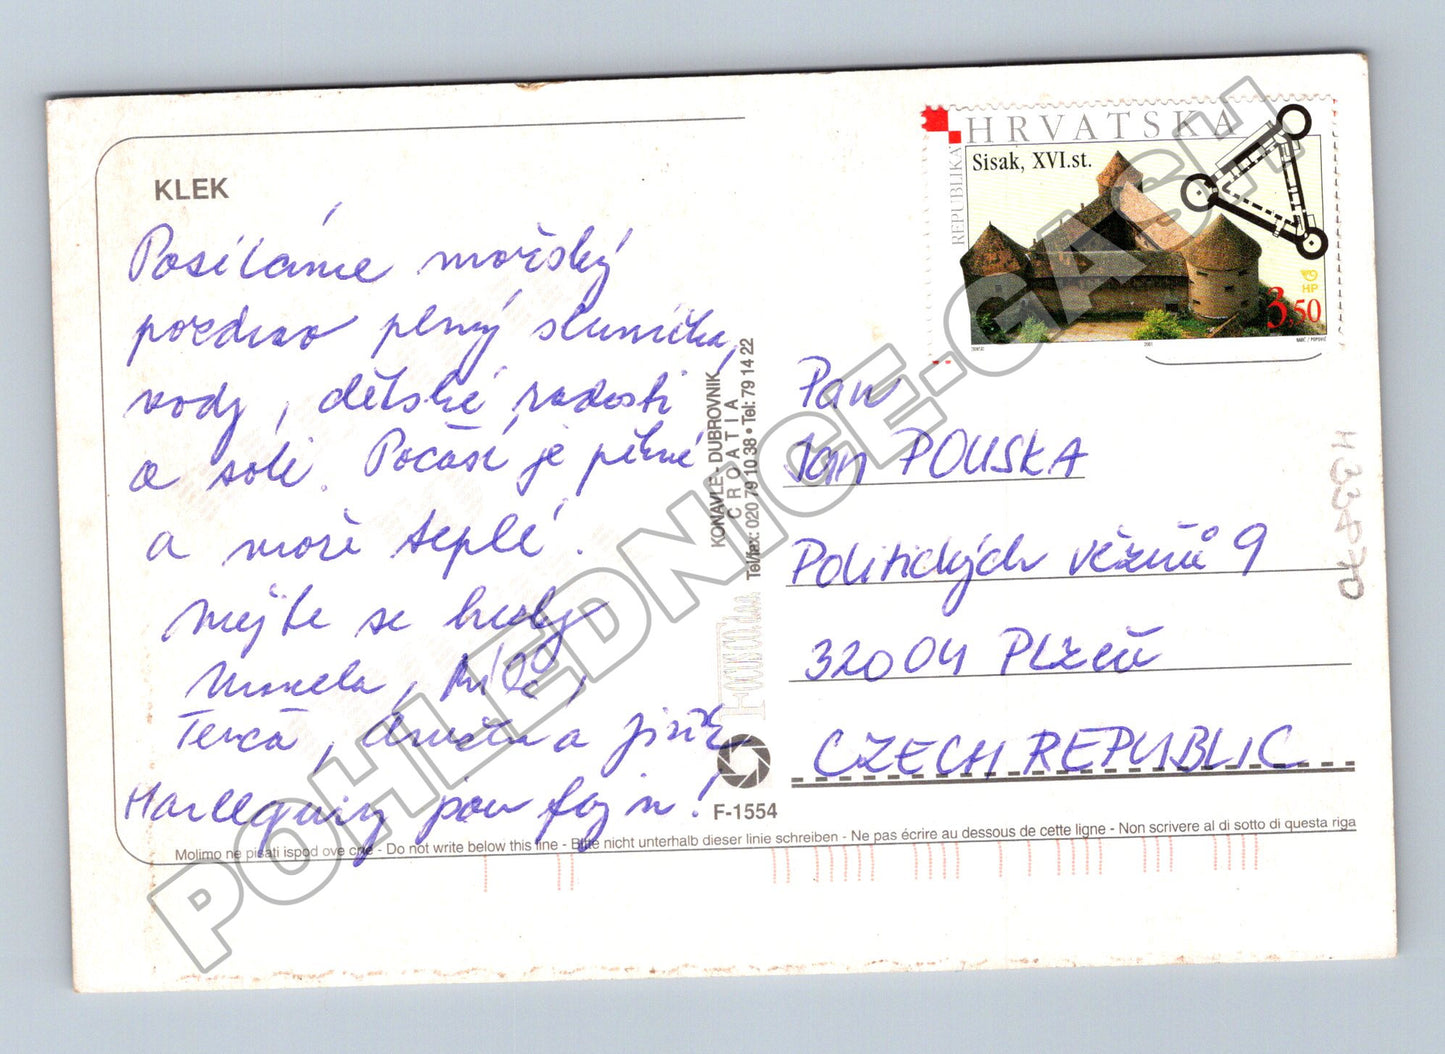 KLEK
Posíláme mořský
pozdrav plný sluníčka,
vody, dětské radosti
a soli. Počasí je pěkné
a moře teplé.
Mějte se hezky
Marcela,
Terča, Anička a Jiřík
Harlequiny jsou fajn!
HRVATSKA
REPUBLIKA
Sisak, XVI.st.
HP
3,50
2001
Pan
Jan POUSKA
Politických vězňů 9
32004 PLZEŇ
CZECH REPUBLIC
KONAVLE - DUBROVNIK
CROATIA
Tel/fax: 020 79 10 38 • Tel: 79 14 22
F-1554
Molimo ne pisati ispod ove crte - Do not write below this line - Bitte nicht unterhalb dieser linie schreiben - Ne pas écrire au dessous de cette ligne - Non scrivere al di sotto di questa riga
POHLEDNICE-GASH